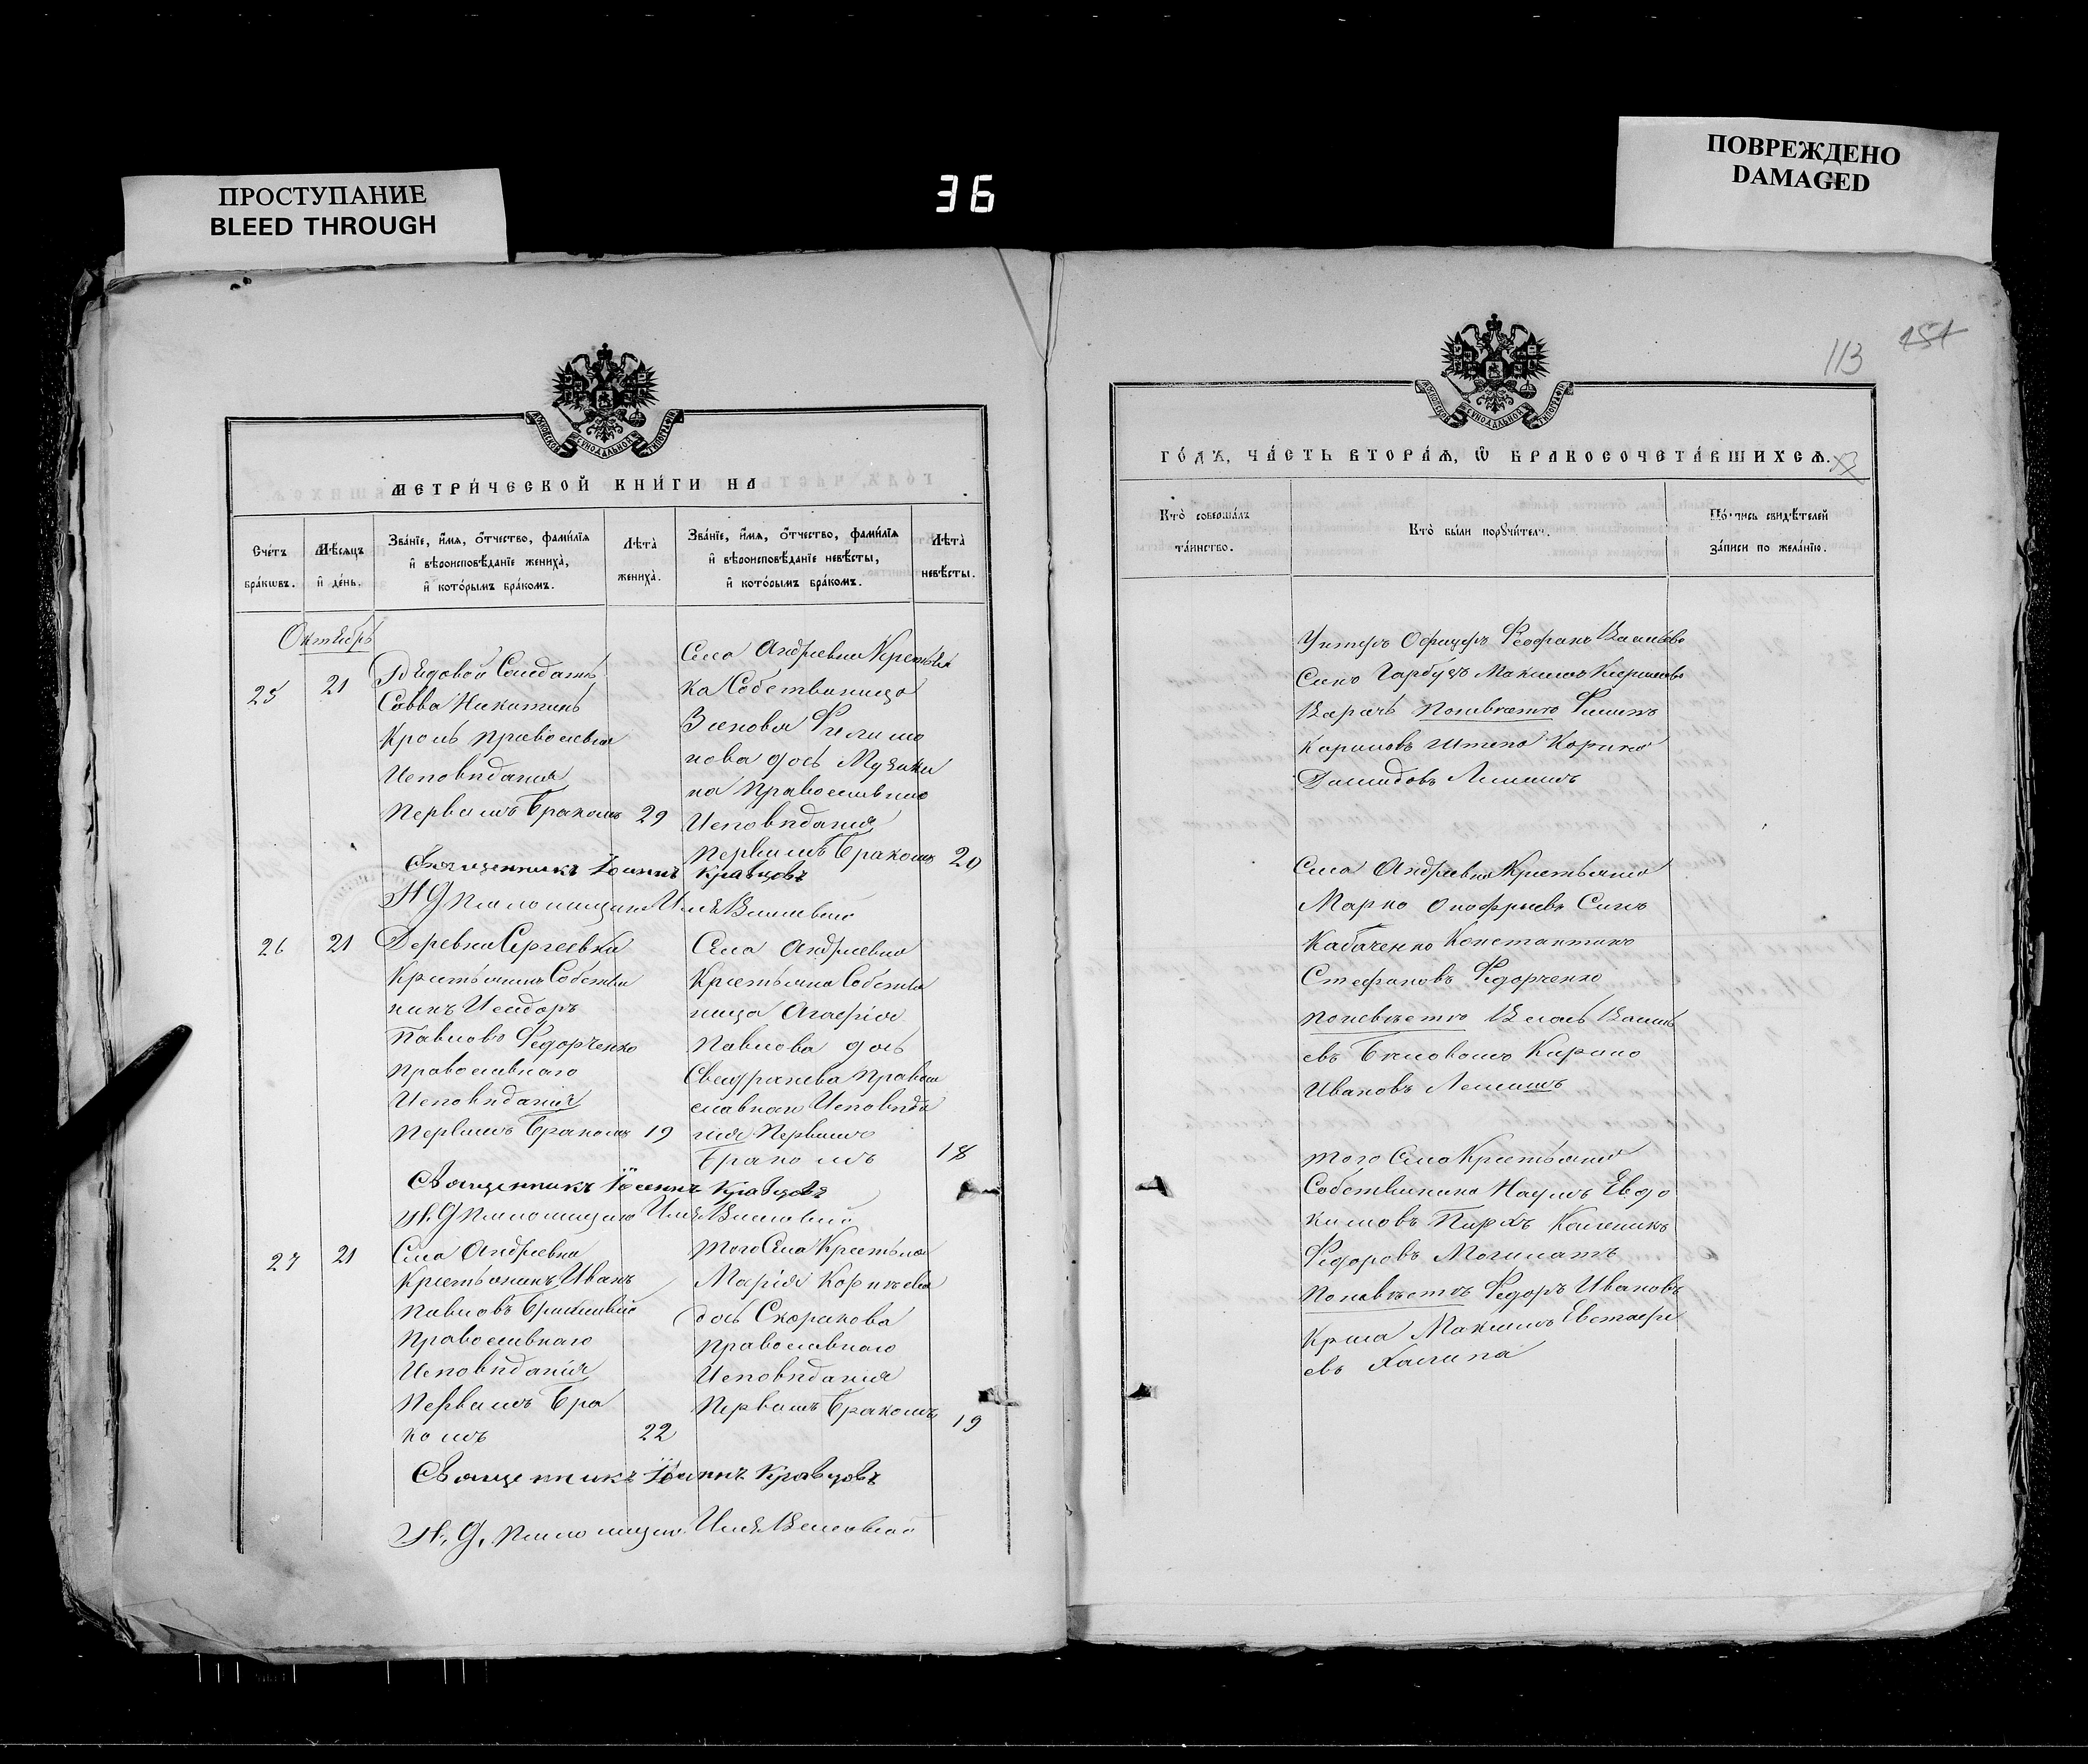 ПРОСТУПАНИЕ
BLEED THROUGH
36
ПОВРЕЖДЕНО
DAMAGED
МЕТРИ́ЧЕСКОЙ КНИ́ГИ НА
Сче́тъ бра́кѡвъ.
Мѣ́сяцъ и҆ де́нь.
Зва́нїе, и҆́мѧ, ѻ҆́тчество, фами́лїѧ
и҆ вѣроисповѣ́данїе жениха̀,
и҆ кото́рымъ бра́комъ.
Лѣта̀ жениха̀.
Зва́нїе, и҆́мѧ, ѻ҆́тчество, фами́лїѧ
и҆ вѣроисповѣ́данїе невѣ́сты,
и҆ кото́рымъ бра́комъ.
Лѣта̀ невѣ́сты.
Октябрь
25
21
Рядовой Солдатъ
Савва Никитинъ
Кроль православна
Исповѣданія
Первымъ Бракомъ
29
Села Андреевки Крестьян
ка Собственница
Зиновія Филимо
нова дочь
на Православнаго
Исповѣданія
Первымъ Бракомъ
20
Священникъ Іоаннъ Кравцовъ
И Д Псаломщика Илія
26
21
Деревни Сергеевки
Крестьянинъ Собствен
никъ Исидоръ
Павловъ Федорченко
Православнаго
Исповѣданія
Первымъ Бракомъ
19
Села Андреевки
Крестьянка Собствен
ница Агафія
Павлова дочь
Право
славнаго Исповѣда
нія Первымъ
Бракомъ
18
Священникъ Іоаннъ Кравцовъ
И. Д Псаломщика Илія
27
21
Села Андреевки
Крестьянинъ Иванъ
Павловъ
Православнаго
Исповѣданія
Первымъ Бра
комъ
22
того Села Крестьян
Марія Корнѣева
дочь Скорикова
Православнаго
Исповѣданія
Первымъ Бракомъ
19
Священникъ Іоаннъ Кравцовъ
И. Д. Псаломщика Илія
113
151
ГО́ДЪ, ЧА́СТЬ ВТОРА́Ѧ, Ѡ҆ БРАКОСОЧЕТА́ВШИХСѦ.
Кто̀ соверша́лъ
та́инство.
Кто̀ бы́ли порꙋчи́тели.
По́дпись свидѣ́телей
за́писи по жела́нїю.
Унтеръ Офицеръ Феофанъ Васильевъ
Сынъ Гарбузъ Максимъ
Карачь По невѣсте Филипъ
Карповъ Штепа
Демидовъ
Села Андреевки Крестьяне
Марко Онофріевъ Сынъ
Кабаченко Константинъ
Стефановъ Федорченко
по невѣсте Власъ Васил
евъ Кирило
Ивановъ
того Села Крестьяне
Собственники Наумъ Евдо
кимовъ Каленикъ
Федоровъ
По невѣсте Федоръ Ивановъ
Максимъ Евстафи
евъ